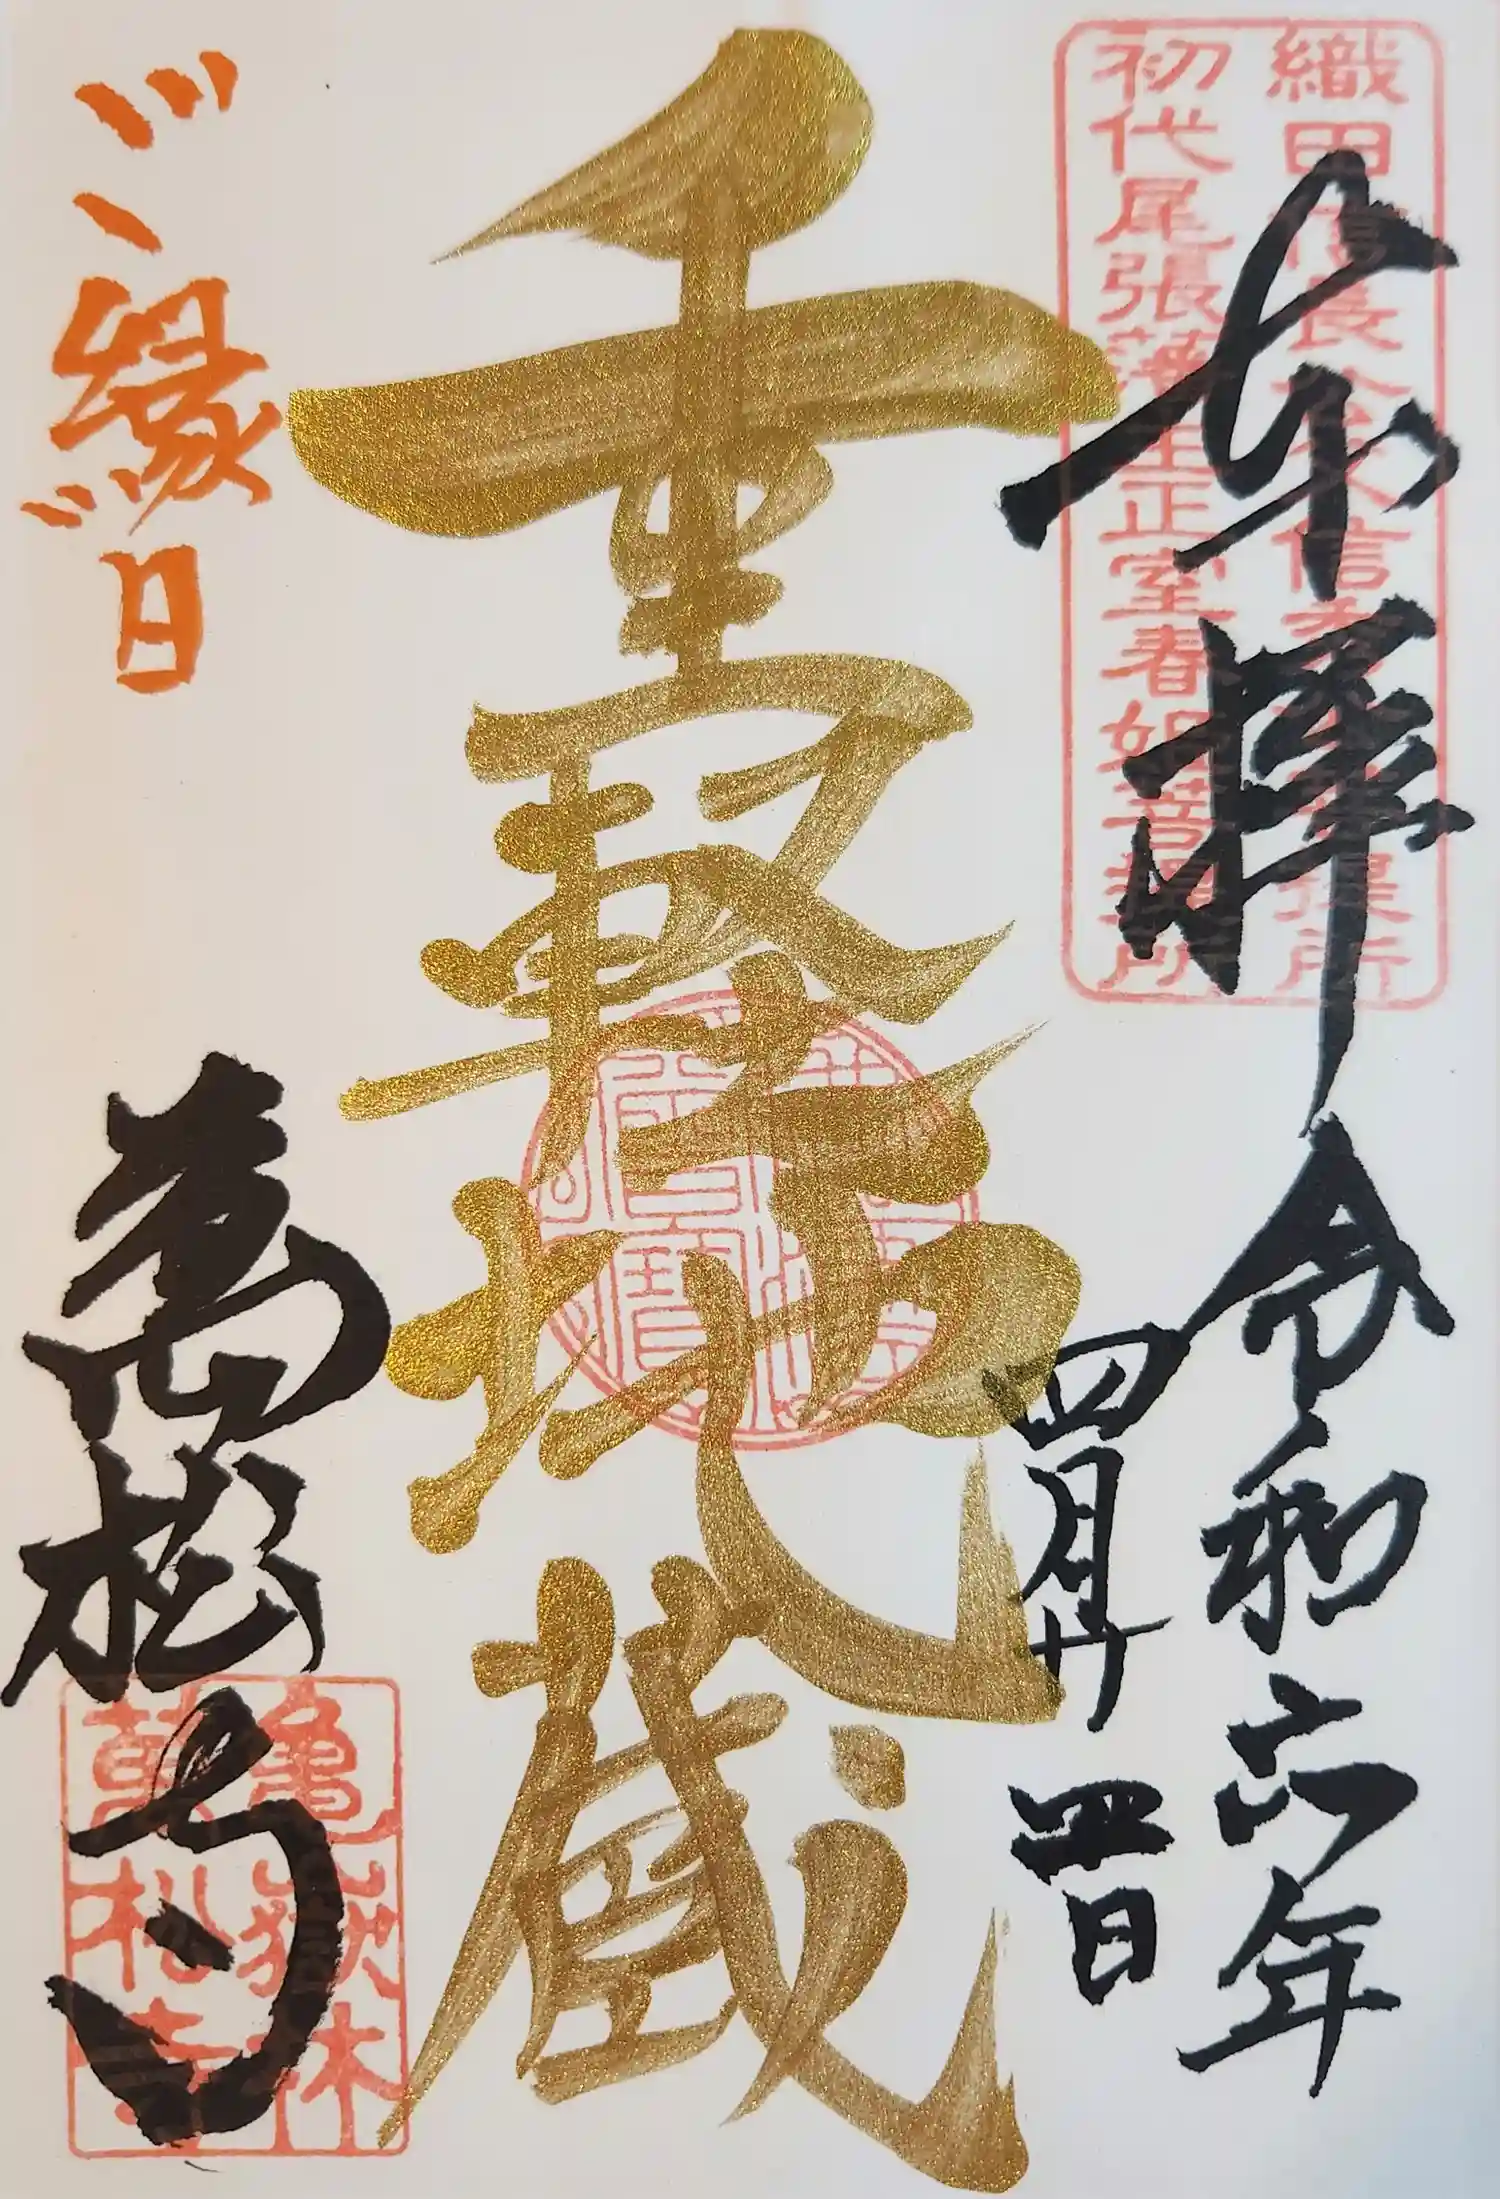 織田信長公父信秀公菩提所
初代尾張藩主正室春姫菩提所
奉拝
令和六年
四月廿四日
重軽地蔵
ご縁日
萬松寺
亀嶽林
萬松寺